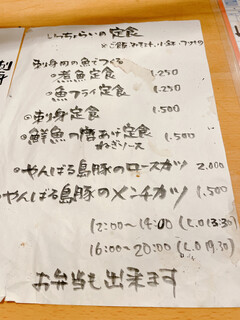 しんちょらいの定食
※ご飯、みそ汁、小鉢、つけもの
刺身用の魚でつくる
◎煮魚定食 1.250
◎魚フライ定食 1.250
◎刺身定食 1.500
◎鮮魚の唐あげ定食 1.500
ねぎソース
◎やんばる島豚のロースカツ 2.000
◎やんばる島豚のメンチカツ 1.500
12:00〜14:00 (L.O 13:30)
16:00〜20:00 (L.O 19.30)
お弁当も出来ます